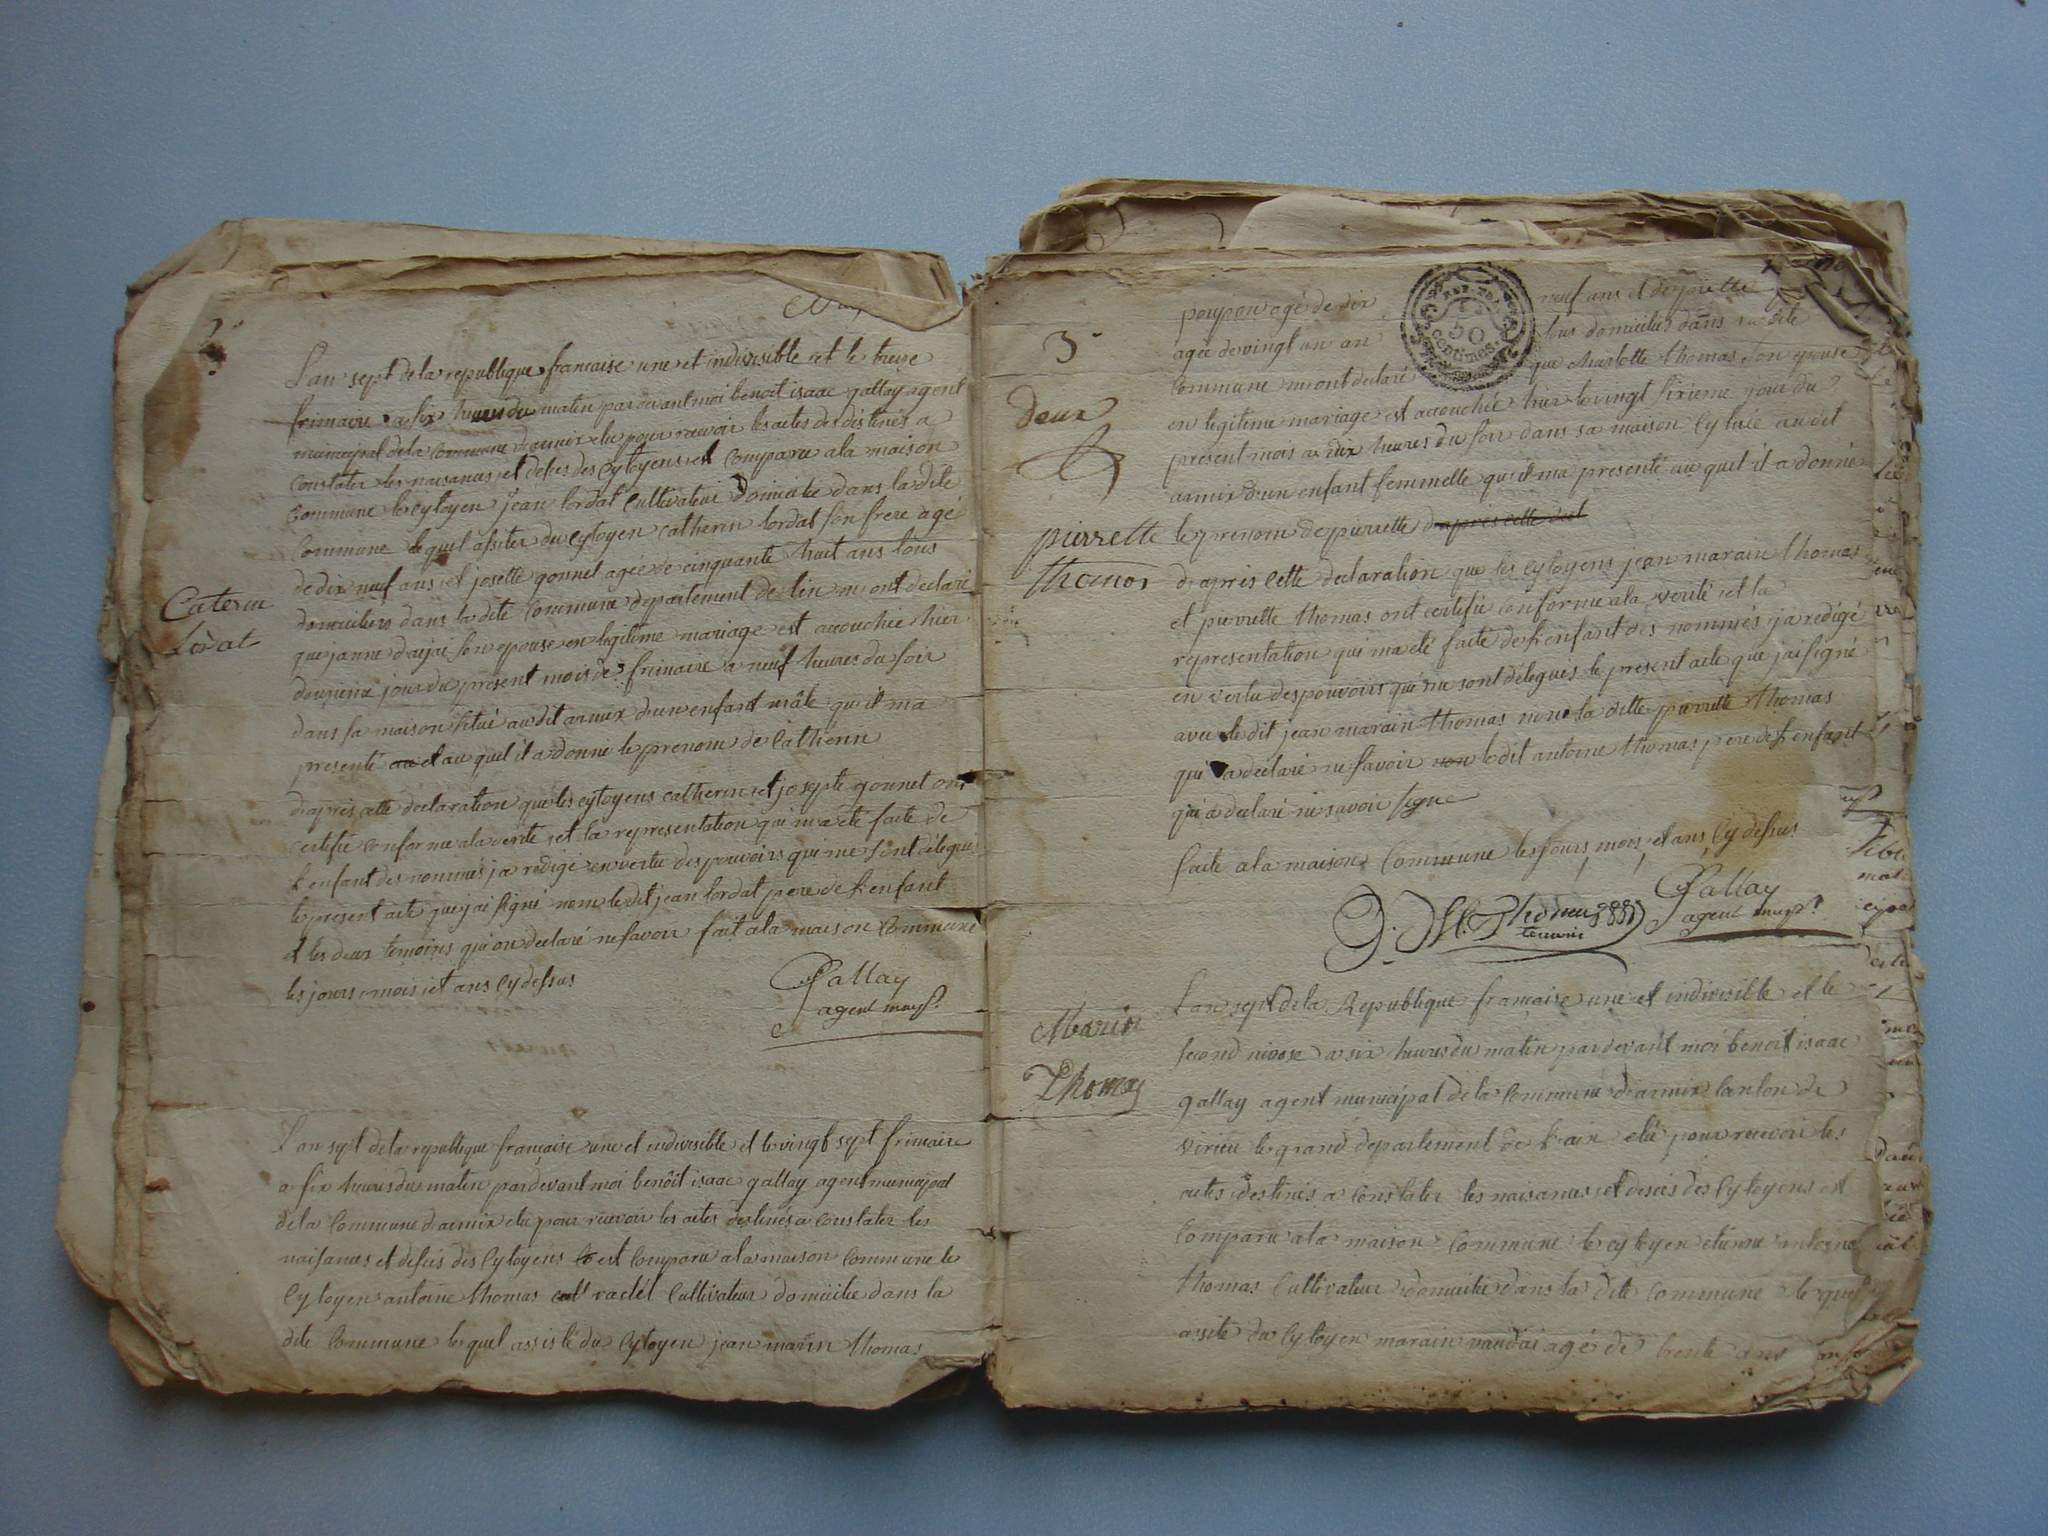 2
L'an sept de la republique francaise une et indivisible et le treize
frimaire a six heures du matin par devant moi benoit isaac gallay agent
municipal de la commune d'armix elu pour recevoir les actes destinés a
constater les naisances et deces des cytoyens est comparu a la maison
commune le cytoyen jean lordat cultivateur domicilié dans la dite
commune le quel assiter du cytoyen catherin lordat son frere agé
de dix neuf ans et josette gonnet agée de cinquante huit ans tous
Caterin
Lorat
domiciliers dans la dite commune departement de l'ain m'ont declaré
que janne dajai son epouse en legitime mariage est accouchée hier
douzieme jour du present mois de frimaire a neuf heures du soir
dans sa maison situé au dit armix d'un enfant mâle qu'il ma
presenté au et au quel il a donné le prenom de Catherin
d'apres cette declaration que les cytoyens catherin et josepte gonnet ont
certifié conforme a la verité et la representation qui ma été faite de
l'enfant des nommés j'a redigé en vertu des pouvoirs que me sont délegués
le present acte que j'ai signé non le dit jean lordat pere de l'enfant
et les deux temoins qu'on declaré ne savoir fait a la maison commune
les jours mois et ans cy dessus
Gallay
agent mup.l
L'an sept de la republique française une et indivisible et le vingt sept frimaire
a six heures du matin par devant moi benoît isaac gallay agent municipal
de la commune d'armix elu pour recevoir les actes destinés a constater les
naisances et deces des cytoyens est comparu a la maison commune le
cytoyen antoine thomas radet cultivateur domicilié dans la
dite commune le quel assisté du cytoyen jean marin thomas
3
deux
poupon agé de dix neuf ans et de piette
agée de vingt un an tous domiciliés dans la dite
commune m'ont declaré que charlotte thomas son epouse
en legitime mariage est accouchée hier le vingt sixieme jour du
present mois a dix heures du soir dans sa maison cy tuée au dit
armix d'un enfant femmelle qu'il ma presenté au quel il a donné
pierrette
thomas
le prenom de pierrette d'apres cette decl
d'apres cette declaration que les cytoyens jean marain thomas
et pierrette thomas ont certifié conforme a la verité et la
representation qui ma été faite de l'enfant des nommés j'a redigé
en vertu des pouvoirs qui me sont délegués le present acte que j'ai signé
avec le dit jean marain thomas non la ditte pierrette thomas
qui a declaré ne savoir non le dit antoine thomas pere de l'enfant
qui a declaré ne savoir signé
faite a la maison commune les jours mois et ans cy dessus
J. M. Thomas
temoin
Gallay
agent mup.l
REP.
50
centimes
Marin
Thomas
L'an sept de la Republique francaise une et indivisible et le
second nivose a six heures du matin par devant moi benoit isaac
gallay agent municipal de la commune d'armix canton de
virieu le grand departement de l'ain elu pour recevoir les
actes destinés a constater les naisances et deces des cytoyens est
comparu a la maison commune le cytoyen etienne antoine
thomas cultivateur domicilié dans la dite commune le quel
assité du cytoyen marain vaudai agé de trente ans